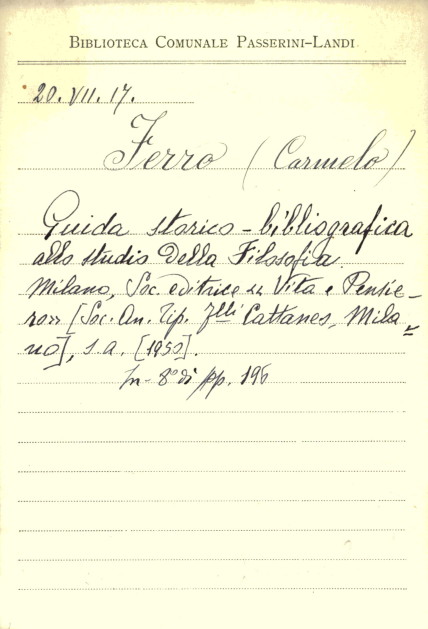 BIBLIOTECA COMUNALE PASSERINI-LANDI
20. VII. 17.
Ferro (Carmelo)
Guida storico-bibliografica
allo studio della Filosofia.
Milano, Soc. editrice « Vita e Pensie-
ro» [Soc. An. Tip. Flli Cattaneo, Mila=
no], s.a. [1950].
In-8° di pp. 196